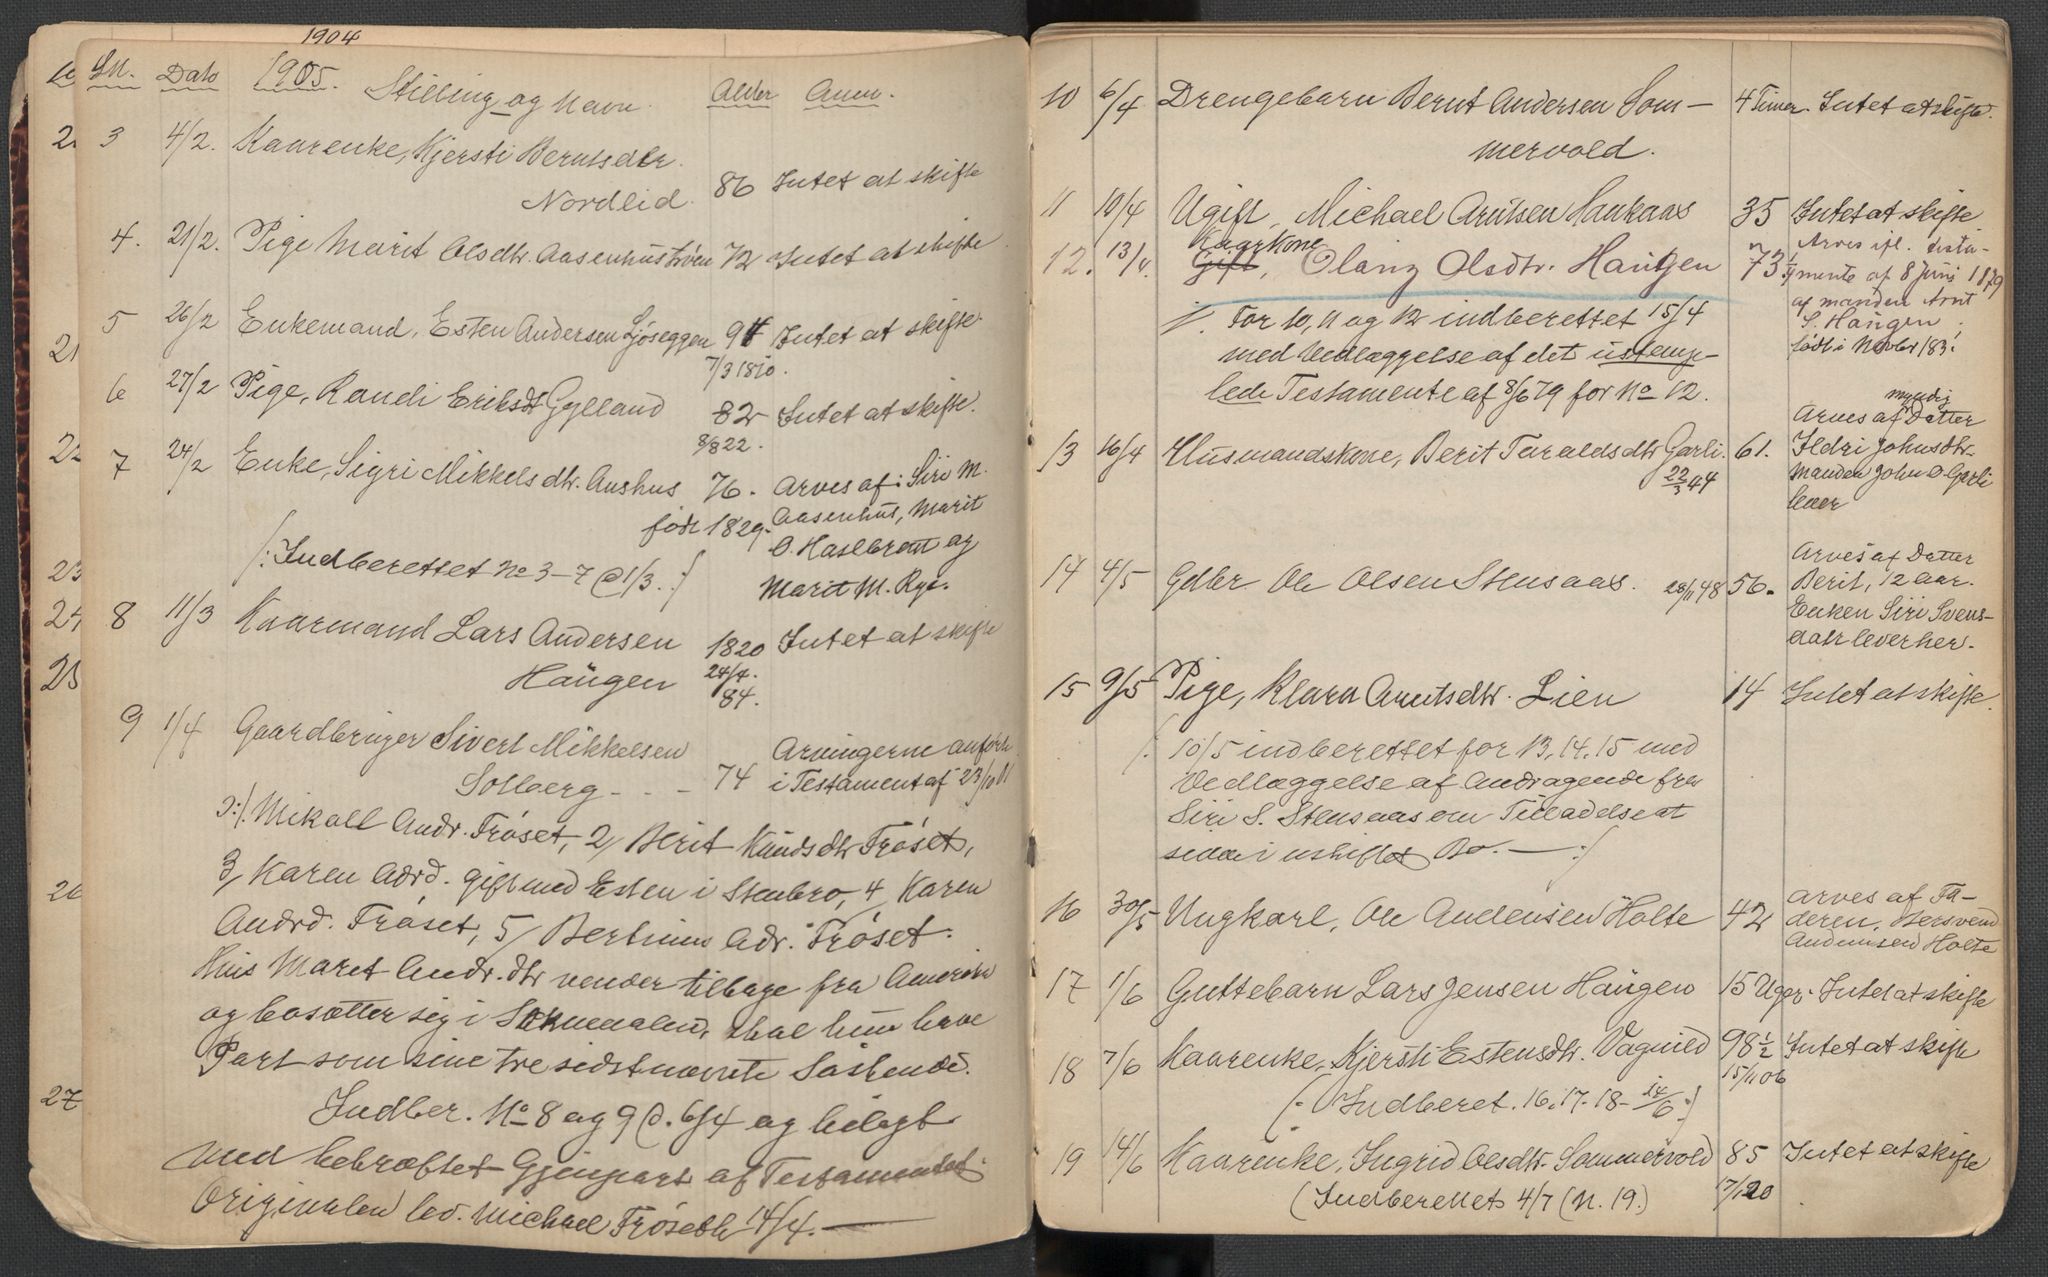 1904
LN. Dato 1905. Stilling og Navn. Alder Anm.
3 4/2. Kaarenke, Kjersti Berntsdtr.
Nordlid. 86 Intet at skifte
4. 21/2. Pige Marit Olsdtr. Aasenhus 72 Intet at skifte
5 26/2 Enkemand, Esten Andersen Ljøseggen 94 Intet at skifte.
7/3 1810.
6 27/2 Pige, Randi Eriksdt Gylland 82 Intet at skifte.
8/8 22.
7 24/2 Enke, Sigri Mikkelsdtr. Aushus 76. Arves af: Siri M.
født 1829. Aasenhus, Marit
O. Haslbrøtt og
/: Indberettet No 3-7 @ 1/3. :/ Marit M. Rye.
8 11/3 Kaarmand Lars Andersen 1820 Intet at skifte
Haugen 24/4.
84.
9 1/4 Gaardbruger Sivert Mikkelsen Arvingerne anført
Solberg - - - 74 i Testament af 23/10 01
ɔ:/. Mikall Andr. Frøset, 2/ Berit Knudsdtr Frøset,
3/ Karen Adrd. gift med Esten i Stenbro, 4/ Karen
Andrd. Frøset, 5/ Bertinus Adr. Frøset.
Hvis Maret Andr.dtr vender tilbage fra Amerika
og bosætter sig i Soknedalen, skal hun have
Part som sine tre sidstnævnte Søskende.
Indber. No 8 og 9 @. 6/4 og bilagt
med bekræftet Gjenpart af Testamentet
Originalen lev. Michael Frøseth 14/4.
10 6/4 Drengebarn Bernt Andersen Som-
mervold. 4 Timer Intet at skifte.
11 10/4 Ugift, Michael Arntsen Haukaas 35 Intet at skifte
12. 13/4. Kaarkone
Gift, Olang Olsdtr. Haugen 73 Arves ifl. testa-
mente af 8 Juni 1879
af manden Arnt
S. Haugen.
født i Novbr 183
/. For 10, 11 og 12 indberettet 15/4
med Vedlæggelse af det ustemp-
lede Testamente af 8/6 79 for No 12.
13 16/4 Husmandskone, Berit Taraldsdtr Garli. 61.
22/3 44
myndig
Arves af Datter
Ildri Johnsdtr.
Manden John O. Garli
lever
14 4/5 Gdbr Ole Olsen Stensaas. 28/11 48 56.
Arves af Datter
Berit, 12 Aar.
Enken Siri Svens-
datr lever her.
15 9/5 Pige, Klara Arntsdtr. Lien 14 Intet at skifte.
/: 10/5 indberettet for 13, 14, 15 med
Vedlæggelse af Andragende fra
Siri S. Stensaas om Tilladelse at
sidde i uskiftet Bo. — :/
16 30/5 Ungkarl, Ole Andersen Holte 42 Arves af Fa-
deren, Bersvend
Andersen Holte
17 1/6 Guttebarn Lars Jensen Haugen 15 Uger. Intet at skifte
18 7/6 Kaarenke, Kjersti Estensdtr. Vagnild 98 1/2 Intet at skifte
15/11 06
(: Indberet. 16. 17. 18 - 14/6 :)
19 14/6 Kaarenke, Ingrid Olsdtr. Sommervold 85 Intet at skifte
(Indberettet 4/7 (N. 19.) 17/1 20
21
22
23
24
25
26
27